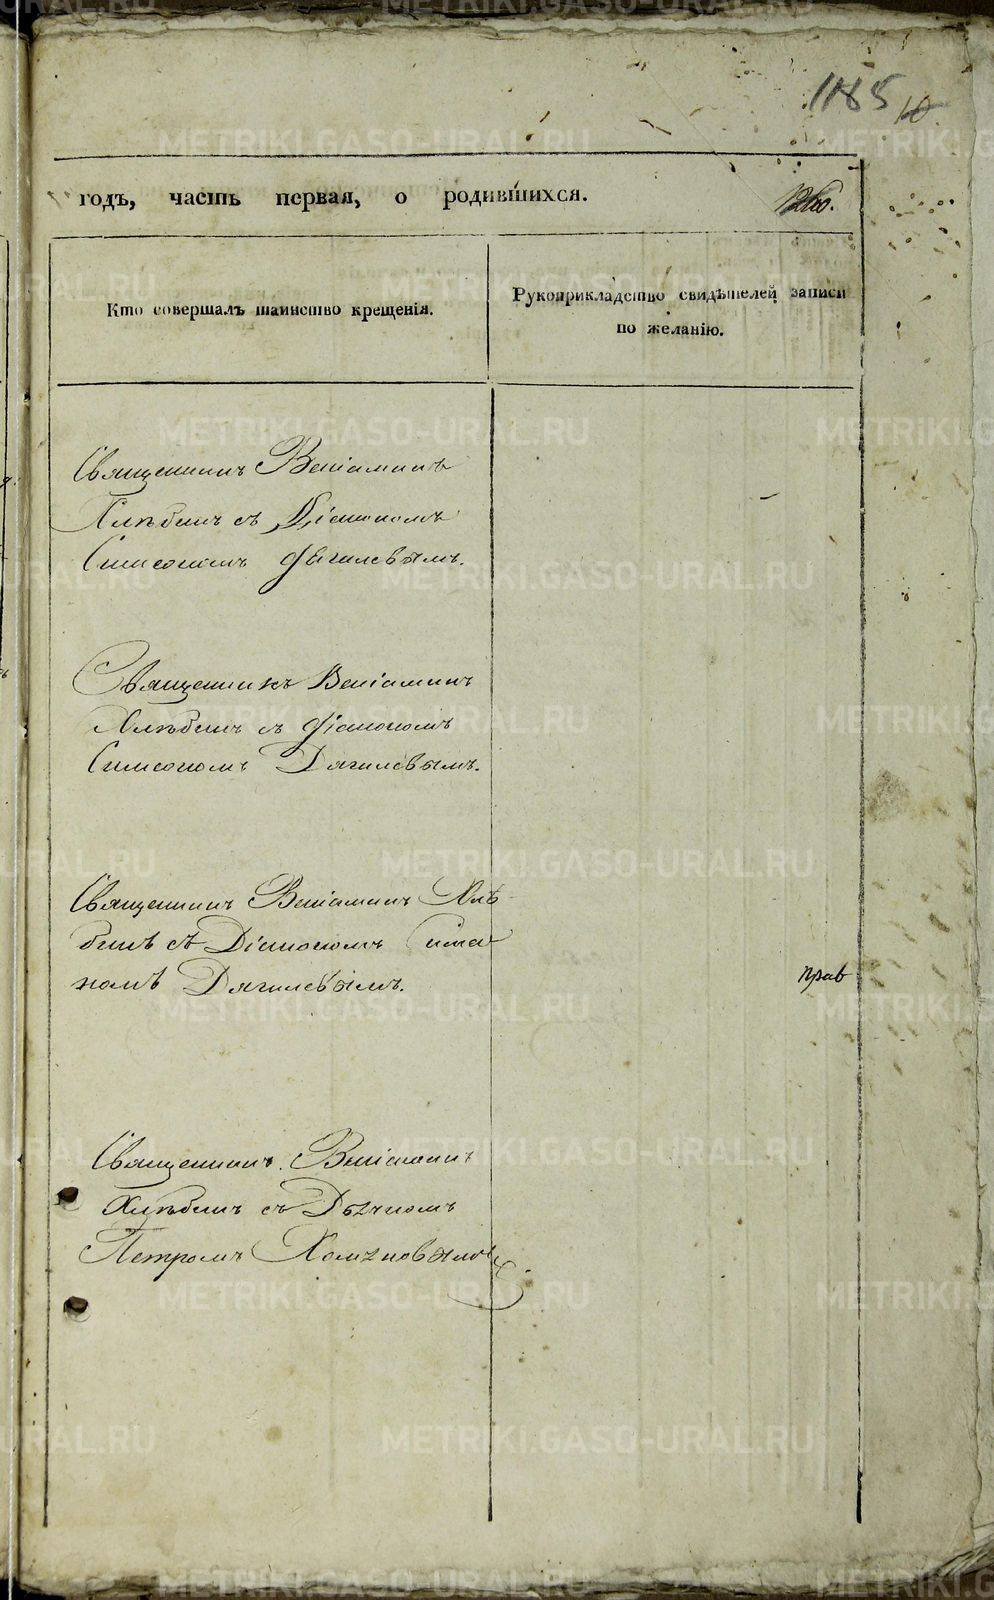 185
годъ, часть первая, о родившихся.
Кто совершалъ таинство крещенія.
Рукоприкладство свидѣтелей записи
по желанію.
Священникъ Веніаминъ
Хлѣбинъ съ Діакономъ
Симеономъ Дягилевымъ.
Священникъ Веніаминъ
Хлѣбинъ съ Діакономъ
Симеономъ Дягилевымъ.
Священникъ Веніаминъ Хлѣ
бинъ съ Діакономъ Симео
номъ Дягилевымъ.
прав
Священникъ Веніаминъ
Хлѣбинъ съ Дьячкомъ
Петромъ
METRIKI.GASO-URAL.RU